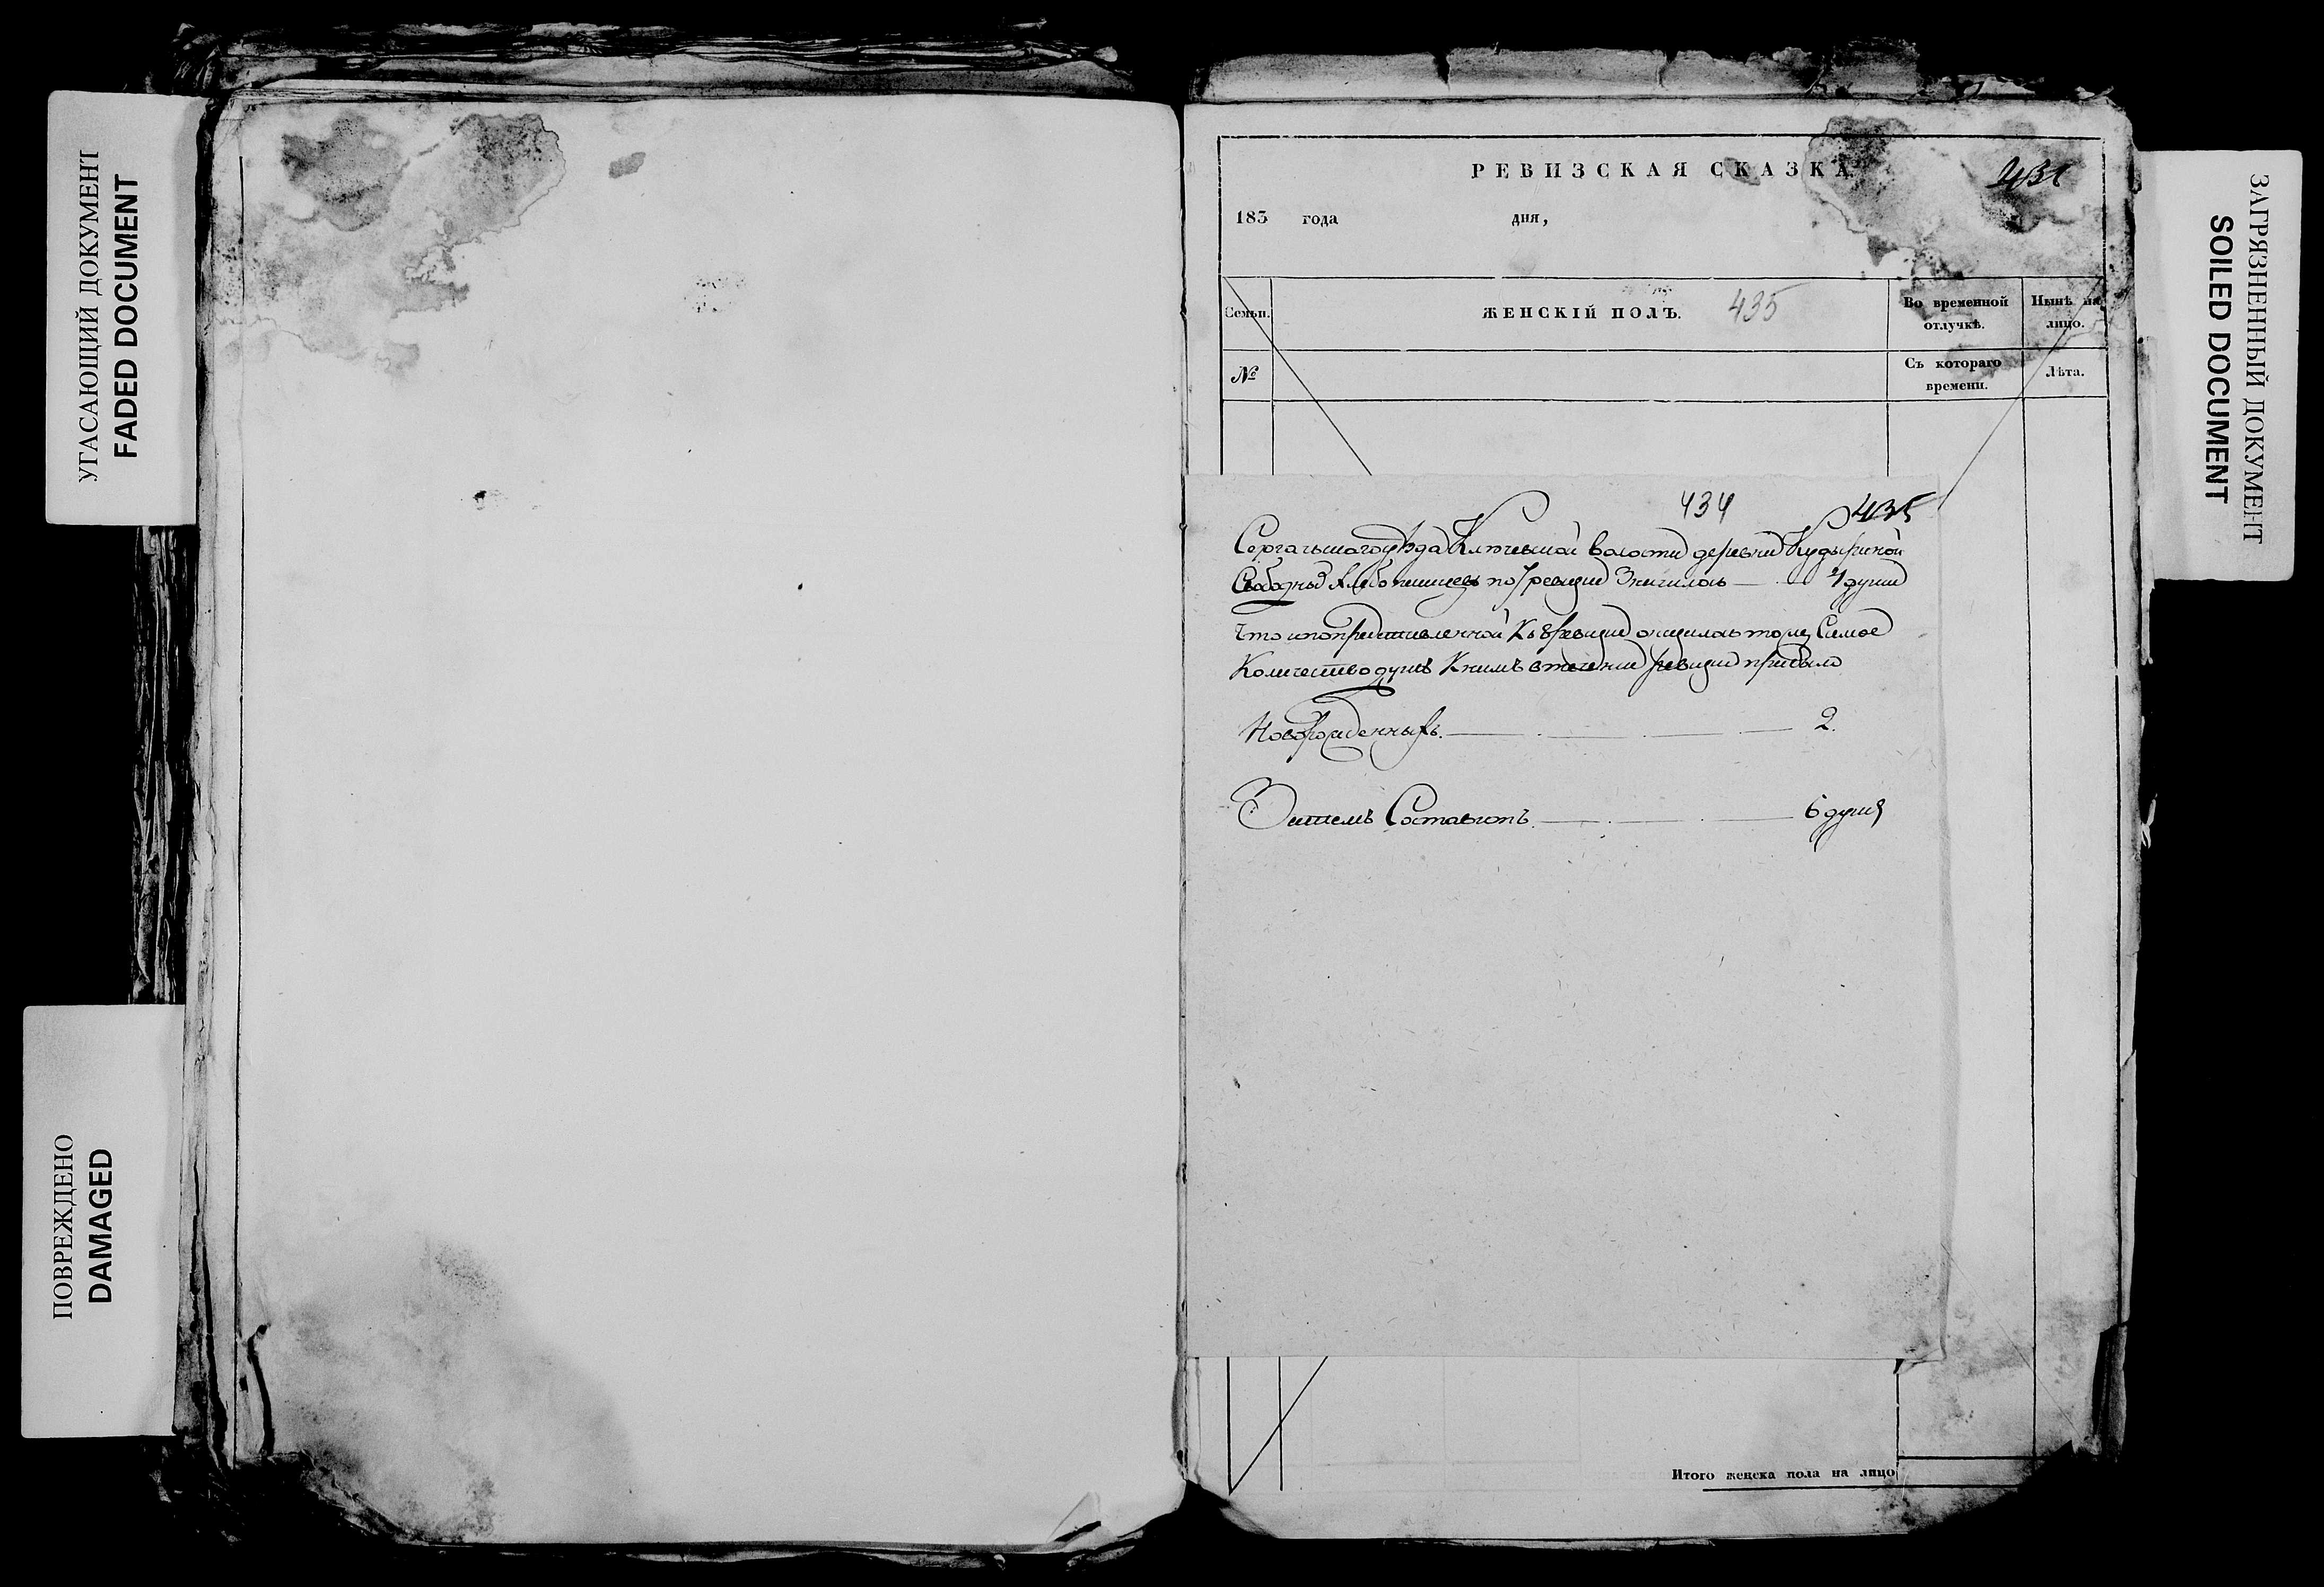 УГАСАЮЩИЙ ДОКУМЕНТ
FADED DOCUMENT
ПОВРЕЖДЕНО
DAMAGED
РЕВИЗСКАЯ СКАЗКА
183 года дня,
Семьи.
ЖЕНСКІЙ ПОЛЪ. 435
Во временной отлучкѣ.
Нынѣ на лицо.
№
Съ котораго времени.
Лѣта.
434 435
уѣзда Ключевской волости деревни
хлебопашцевъ по 7 ревизие значилось 4 души
что и по представленной к 8 ревизие оказилось тоже самое
Количество душъ К нимъ в течение ревизии прибыло
Новорожденныхъ. 2.
Затемъ Составитъ 6 душъ
Итого женска пола на лицо
ЗАГРЯЗНЕННЫЙ ДОКУМЕНТ
SOILED DOCUMENT